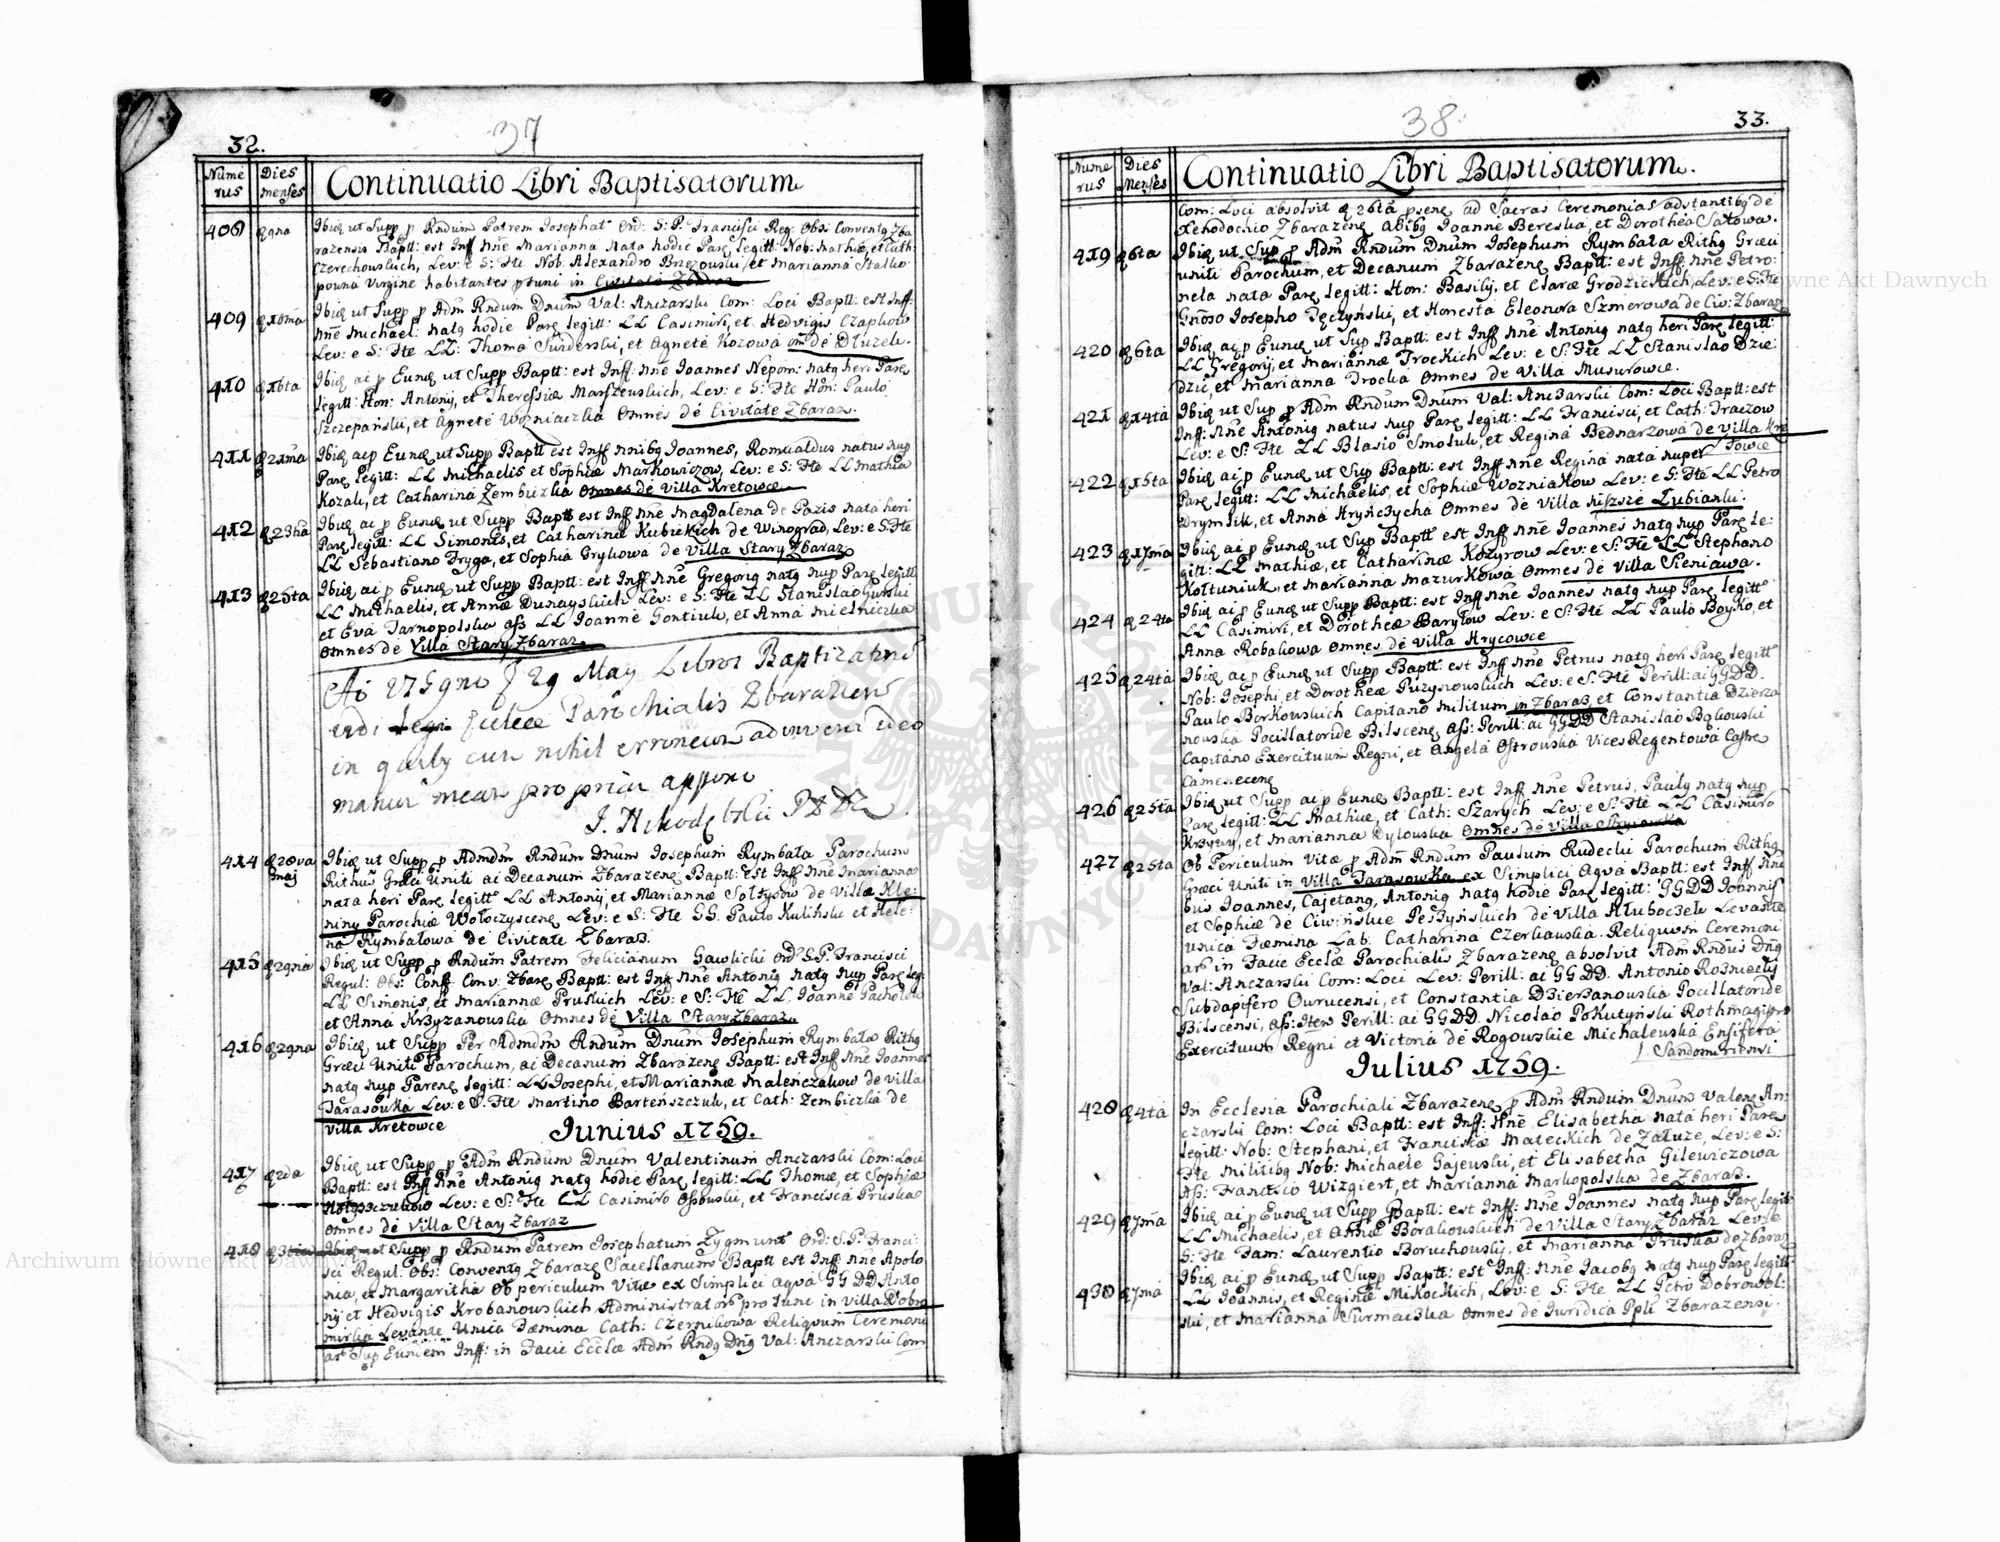 32.
37
Nume
rus
Dies
menses
Continuatio Libri Baptisatorum
408 q9na Ibiq ut Supp p Rndum Patrem Josephat Ord: S: P. Francisci Reg: Obs: Conventq Zba
razensis Baptt: est Inff Nñe Marianna nata hodie Parq legitt: Nob: Mathiæ, et Cath:
Czerechowskich, Lev: e S: Fte Nob: Alexandro Brzezouski et Marianna Stalko
pouna Virgine habitantes ptunc in Civitate Zbaraz
409 q18ma Ibiq ut Supp p Adm Rndum Dnum Val: Anczarski Com: Loci Baptt: est Inff:
Nñe Michael: natq hodie Parq legitt: LL Casimiri, et Hedvigis Czapkow
Lev: e S: Fte LL: Thoma Surderski, et Agneté Kozowa om de Dłuzek.
410 q18ta Ibiq ai p Eunq ut Supp Baptt: est Inff: Nñe Joannes Nepom: natq heri Parq
legitt: Hon: Antonij, et Theressiæ Marszeuskich, Lev: e S: Fte Hon: Paulo
Szczepański, et Agneté Wozniaczka Omnes de Civitate Zbaraz.
411 q21ma Ibiq ai p Eunq ut Supp Baptt est Inff nnibq Joannes, Romualdus natus nup
Parq legitt: LL Michaelis et Sophiæ Markowiczow, Lev: e S: Fte LL Mathia
Kozak, et Catharina Zembiczka Omnes de Villa Kretowce.
412 q23tia Ibiq ai p Eunq ut Supp Baptt est Inff nñe Magdalena de Pazis nata heri
Parq legitt: LL Simonis, et Catharinæ Kubickich de Winograd, Lev: e S: Fte
LL Sebastiano Fryga, et Sophia Grykowa de Villa Stary Zbaraz
413 q25ta Ibiq ai p Eunq ut Supp Baptt: est Inff Nñe Gregoriq natq nup Parq legitt
LL Michaelis, et Annæ Dunayskich Lev: e S: Fte LL Stanislao Gurski
et Eva Tarnopolska ass LL Joanne Gontiuk, et Anna Mielniczka
Omnes de Villa Stary Zbaraz.
Ai 1759no 29 May Libros Baptizatorũ
vidi legi Parochialis Zbaraziens
in quib cum nihil erroneum adinveni ideo
manũ meam propriam apposui
414 q28va Maj Ibiq ut Supp p Admdm Rndum Dnum Josephum Rymbała Parochum
Rithus Græci Uniti ai Decanum Zbarazenq Baptt: est Inff Nñe Marianna
nata heri Parq legitt LL Antonij, et Mariannæ Sołtysow de Villa Kle:
niny Parochiæ Wołoczyscenq Lev: e S: Fte GG. Paulo Kulinski et Hele:
na Rymbałowa de Civitate Zbaraz.
415 q29na Ibiq ut Supp p Rndum Patrem Felicianum Gawlicki Ord S: P. Francisci
Regul: Obs: Conff. Conv: Zbarq Baptt: est Inff Nñe Antoniq natq nup Parq leg:
LL Simonis, et Mariannæ Pruskich Lev: e S: Fte LL Joanne Pacholko
et Anna Krzyzanouska Omnes de Villa Stary Zbaraz.
416 q29na Ibiq ut Supp Per Admdm Rndum Dnum Josephum Rymbała Rithq
Græci Uniti Parochum, ai Decanum Zbarazenq Baptt: est Inff Nñe Joannes
natq nup Parenq legitt: LL Josephi, et Mariannæ Maleńczakow de Villa
Tarasowka Lev: e S: Fte Martino Bartenszczuk, et Cath: Zembiczka de
Villa Kretowce
Junius 1759.
417 q2da Ibiq ut Supp p Adm Rndum Dnum Valentinum Anczarski Com: Loci
Baptt: est Inff Nñe Antoniq natq hodie Parq legitt: LL Thomæ, et Sophiæ
Lev: e S: Fte LL Casimiro Ossouski, et Francisca Pruska
Omnes de Villa Stary Zbaraz
418 q3tia Ibiq ut Supp p Rndum Patrem Josephatum Zygmunt Ord: S: P. Franci:
sci Regul: Obs: Conventq Zbarazq Sacellanum Baptt est Inff: Nñe Apolo
nia, et Margaritha Ob periculum Vitæ ex Simplici aqva GG DD Anto
nij et Hedvigis Krobanouskich Administratorũ pro tunc in Villa Dobro
mirka Levante Unica Fœmina Cath: Czernikowa Reliqvum Ceremoni
arũ Sup Eundem Inff: in Facie Ecclæ Adm Rndq Dnq Val: Anczarski Com
33.
38
Nume
rus
Dies
Menses
Continuatio Libri Baptisatorum.
Com: Loci absolvit q 26ta psenq ad Sacras Ceremonias adstantibq de
Xehodochio Zbarazenq Abibq Joanne Bereska, et Dorothea Satowa.
419 q6ta Ibiq ut Sup p Adm Rndum Dnum Josephum Rymbała Rithq Græci
Uniti Parochum, et Decanum Zbarazenq Baptt: est Inff: Nñe Petro:
nela nata Parq legitt: Hon: Basilij, et Claræ Grodzickich, Lev: e S: Fte
Gnoso Josepho Tęczyński, et Honesta Eleonora Szmerowa de Civ: Zbaraz
420 q6ta Ibiq ai p Eunq ut Sup Baptt: est Inff Nñe Antoniq natq heri Parq legitt:
LL Gregorij, et Mariannæ Trockich Lev: e S: Fte LL Stanislao Dzie:
dzic, et Marianna Trocka Omnes de Villa Musurowce.
421 q14ta Ibiq ut Sup p Adm Rndum Dnum Val: Anczarski Com: Loci Baptt: est
Inff: Nñe Antoniq natus nup Parq legitt: LL Francisci, et Cath: Traczow
Lev: e S: Fte LL Blasio Smoluk, et Regina Bednarzowa de Villa Kre
towce
422 q15ta Ibiq ai p Eunq ut Sup Baptt: est Inff Nñe Regina nata nuper
Parq legitt: LL Michaelis, et Sophiæ Wozniakow Lev: e S: Fte LL Petro
Drymlik, et Anna Hryńczycha Omnes de Villa niższe Lubianki.
423 q17ma Ibiq ai p Eunq ut Sup Baptt est Inff Nñe Joannes natq nup Parq le:
gitt: LL Mathiæ, et Catharinæ Kozyrow Lev: e S: Fte LL Stephano
Kołtuniuk, et Marianna Mazurkowa Omnes de Villa Sieniawa.
424 q24ta Ibiq ai p Eunq ut Supp Baptt: est Inff Nñe Joannes natq nup Parq legitt
LL Casimiri, et Dorotheæ Baryłow Lev: e S: Fte LL Paulo Boyko, et
Anna Robakowa Omnes de Villa Hrycowce
425 q24ta Ibiq ai p Eunq ut Supp Baptt: est Inff Nñe Petrus natq heri Parq legitt
Nob: Josephi, et Dorotheæ Puzynouskich Lev: e S: Fte Perill: ai GG DD.
Paulo Borkowskich Capitano militum in Zbaraz, et Constantia Dzierza
nouska Pocillatoride Bilscenq, ass: Perill: ai GG DD Stanislao Bąkouski
Capitano Exercituum Regni, et Angela Ostrouska Vices Regentowa Castrq
Camenecenq
426 q25ta Ibiq ut Supp ai p Eunq Baptt: est Inff: Nñe Petrus, Paulq natq nup
Parq legitt: LL Mathiæ, et Cath: Szarych Lev: e S: Fte LL Casimiro
Krzywy, et Marianna Dylouska Omnes de Villa Stryiowka
427 q25ta Ob Periculum Vitæ p Adm Rndum Paulum Rudecki Parochum Rithq
Græci Uniti in Villa Tarasowka ex Simplici Aqva Baptt: est Inff Nni
bus Joannes, Cajetanq, Antoniq natq hodie Parq legitt: GG DD Joannis
et Sophiæ de Civinskie Peszyńskich de Villa Hłuboczek Levante
Unica Fœmina Lab: Catharina Czerkauska. Reliqvum Ceremoni
arũ in Facie Ecclæ Parochialis Zbarazenq absolvit Adm Rndus Dnq
Val: Anczarski Com: Loci Lev: Perill: ai GG DD. Antonio Rozniacki
Subdapifero Ovrucensi, et Constantia Dzierżanouska Pocillatoride
Bilscensi, ass: Item Perill: ai GG DD. Nicolao Pokutyński Rothmagistro
Exercituum Regni et Victoria de Rogouskie Michaleuska Ensifera
Sandomiriensi
Julius 1759.
428 q4ta In Ecclesia Parochiali Zbarazenq p Adm Rndum Dnum Valenq An:
czarski Com: Loci Baptt: est Inff: Nñe Elisabetha nata heri Parq
legitt: Nob: Stephani, et Franciscæ Mateckich de Załuze, Lev: e S:
Fte Militibq Nob: Michaele Gajeuski, et Elisabetha Gilewiczowa
Ass: Francisco Wizgiert, et Marianna Markopolska de Zbaraz.
429 q7ma Ibiq ai p Eunq ut Supp Baptt: est Inff: Nñe Joannes natq nup Parq legitt:
LL Michaelis, et Annæ Borakouskich de Villa Stary Zbaraz Lev: e
S: Fte Fam: Laurentio Boruchouski, et Marianna Pruska de Zbaraz
430 q7ma Ibiq ai p Eunq ut Supp Baptt: est Inff: Nñe Jacobq natq nup Parq legitt:
LL Joannis, et Reginæ Mikockich, Lev: e S: Fte LL Petro Dobrowol:
ski, et Marianna Surmaczka Omnes de Juridica Ppti Zbarazensi.
Archiwum Główne Akt Dawnych